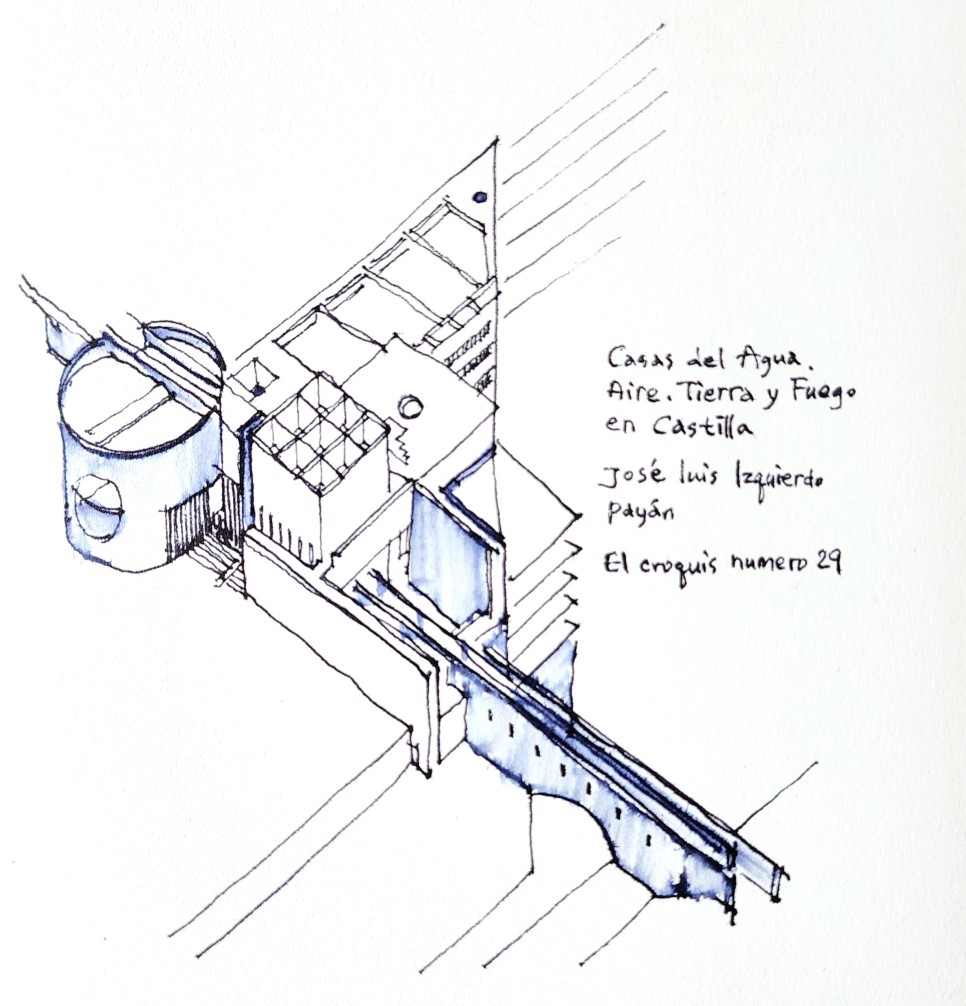 Casas del Agua.
Aire. Tierra y Fuego
en Castilla
José luis Izquierdo
payán
El croquis numero 29